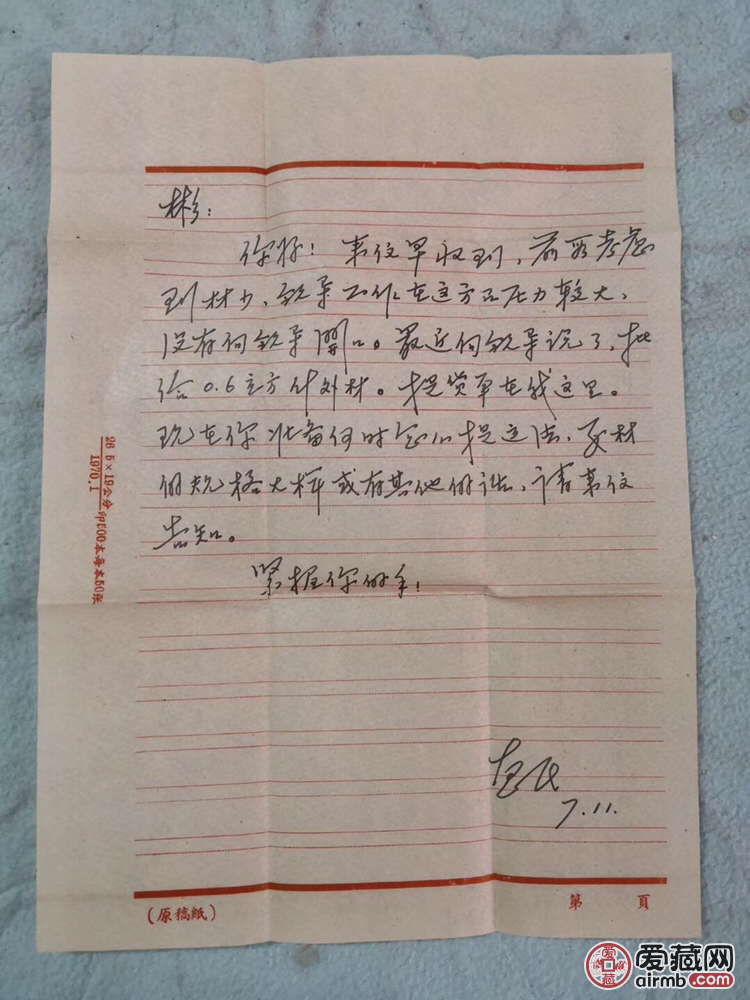 彬:
你好！来信早收到，前段考虑
到材少，领导工作在这方面压力较大，
没有向领导開口。最近向领导说了，批
给0.6立方计外材。提货单在我这里。
现在你准备何时
的规格大样或有其他的话，请来信
告知。
紧握你的手！
7.11.
26.5×19公分
1970.1
印500本每本50张
(原稿紙)
第 頁
爱藏网
airmb.com